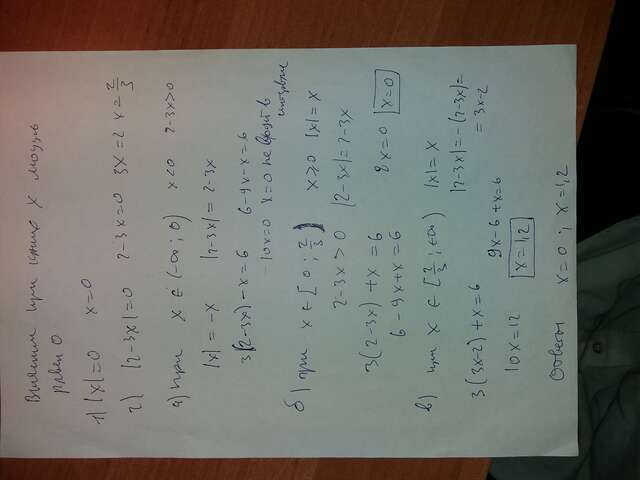 Выясним при каких x модуль
равен 0
1) |x|=0 x=0
2) |2-3x|=0 2-3x=0 3x=2 x=2/3
а) при x∈(-∞;0) x<0 2-3x>0
|x|=-x |2-3x|=2-3x
3(2-3x)-x=6 6-9x-x=6
-10x=0 x=0 не входит в
интервал
б) при x∈[0;2/3) x≥0 |x|=x
2-3x>0 |2-3x|=2-3x
3(2-3x)+x=6
6-9x+x=6 8x=0 x=0
в) при x∈[2/3;+∞) |x|=x
|2-3x|=-(2-3x)=
=3x-2
3(3x-2)+x=6
9x-6+x=6
10x=12 x=1,2
Ответ x=0; x=1,2